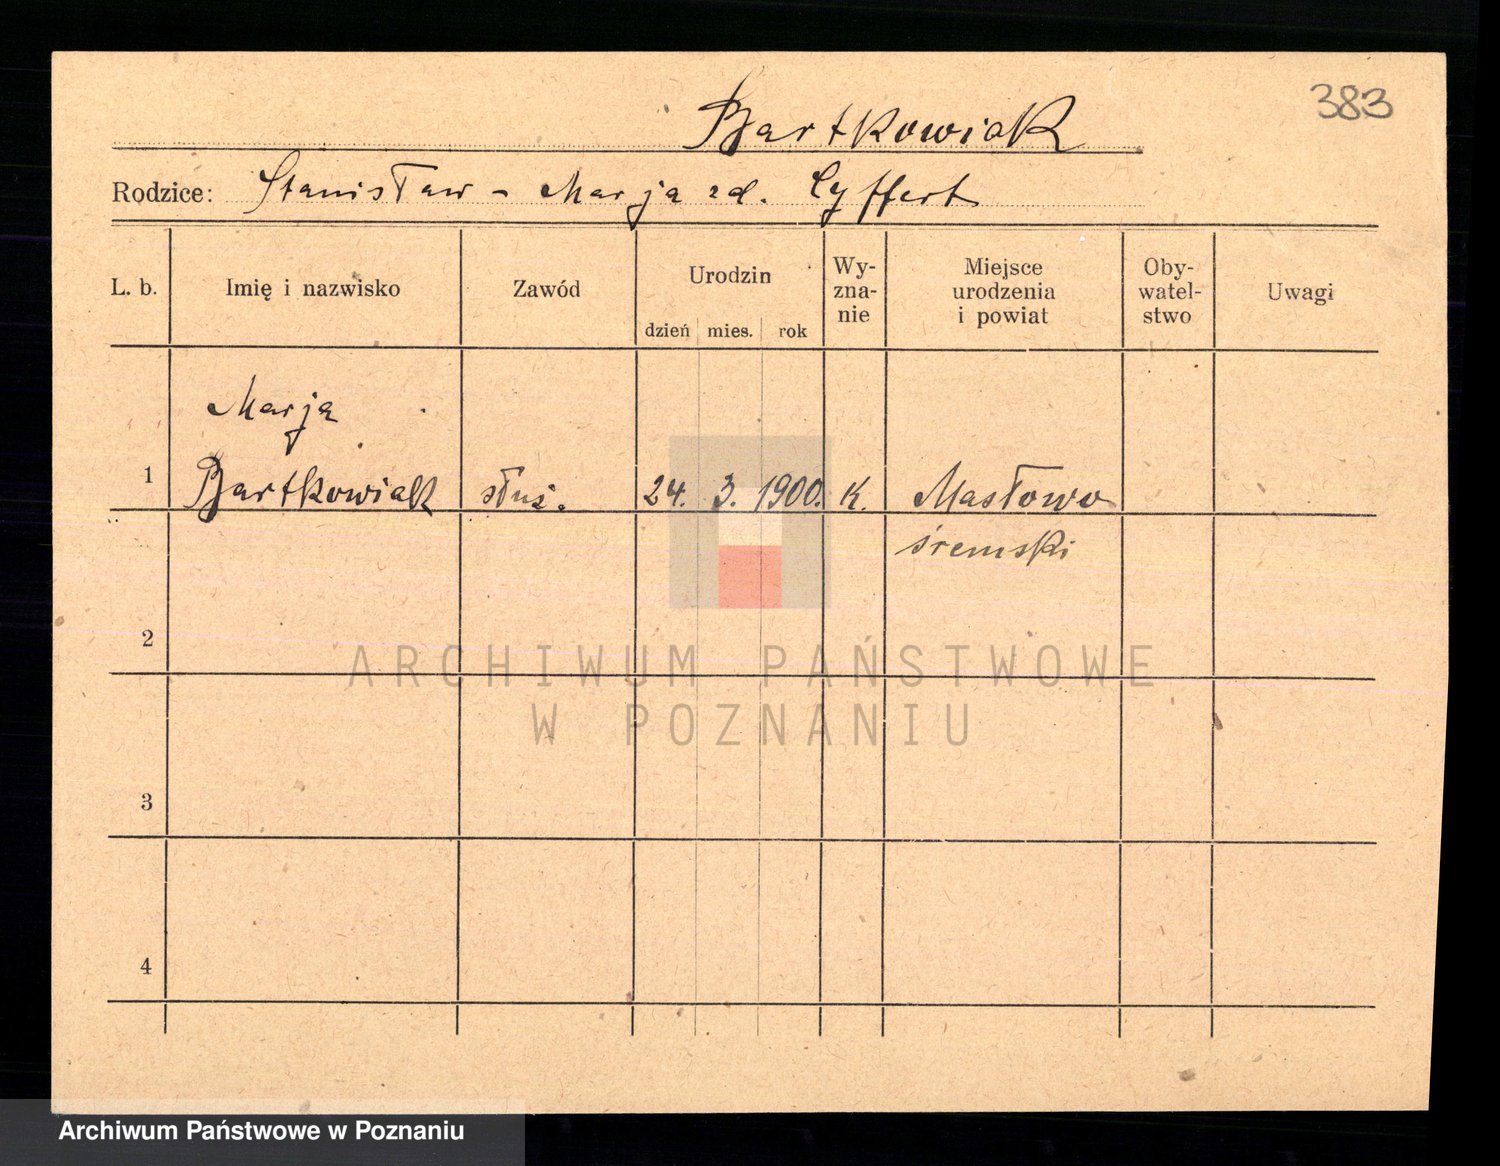 383
Bartkowiak
Rodzice: Stanisław - Marja zd. Cyffert
L. b. Imię i nazwisko Zawód Urodzin dzień mies. rok Wy-zna-nie Miejsce urodzenia i powiat Oby-watel-stwo Uwagi
Marja
1 Bartkowiak służ. 24. 3. 1900. K. Masłowo
śremski
2
ARCHIWUM PAŃSTWOWE
W POZNANIU
3
4
Archiwum Państwowe w Poznaniu